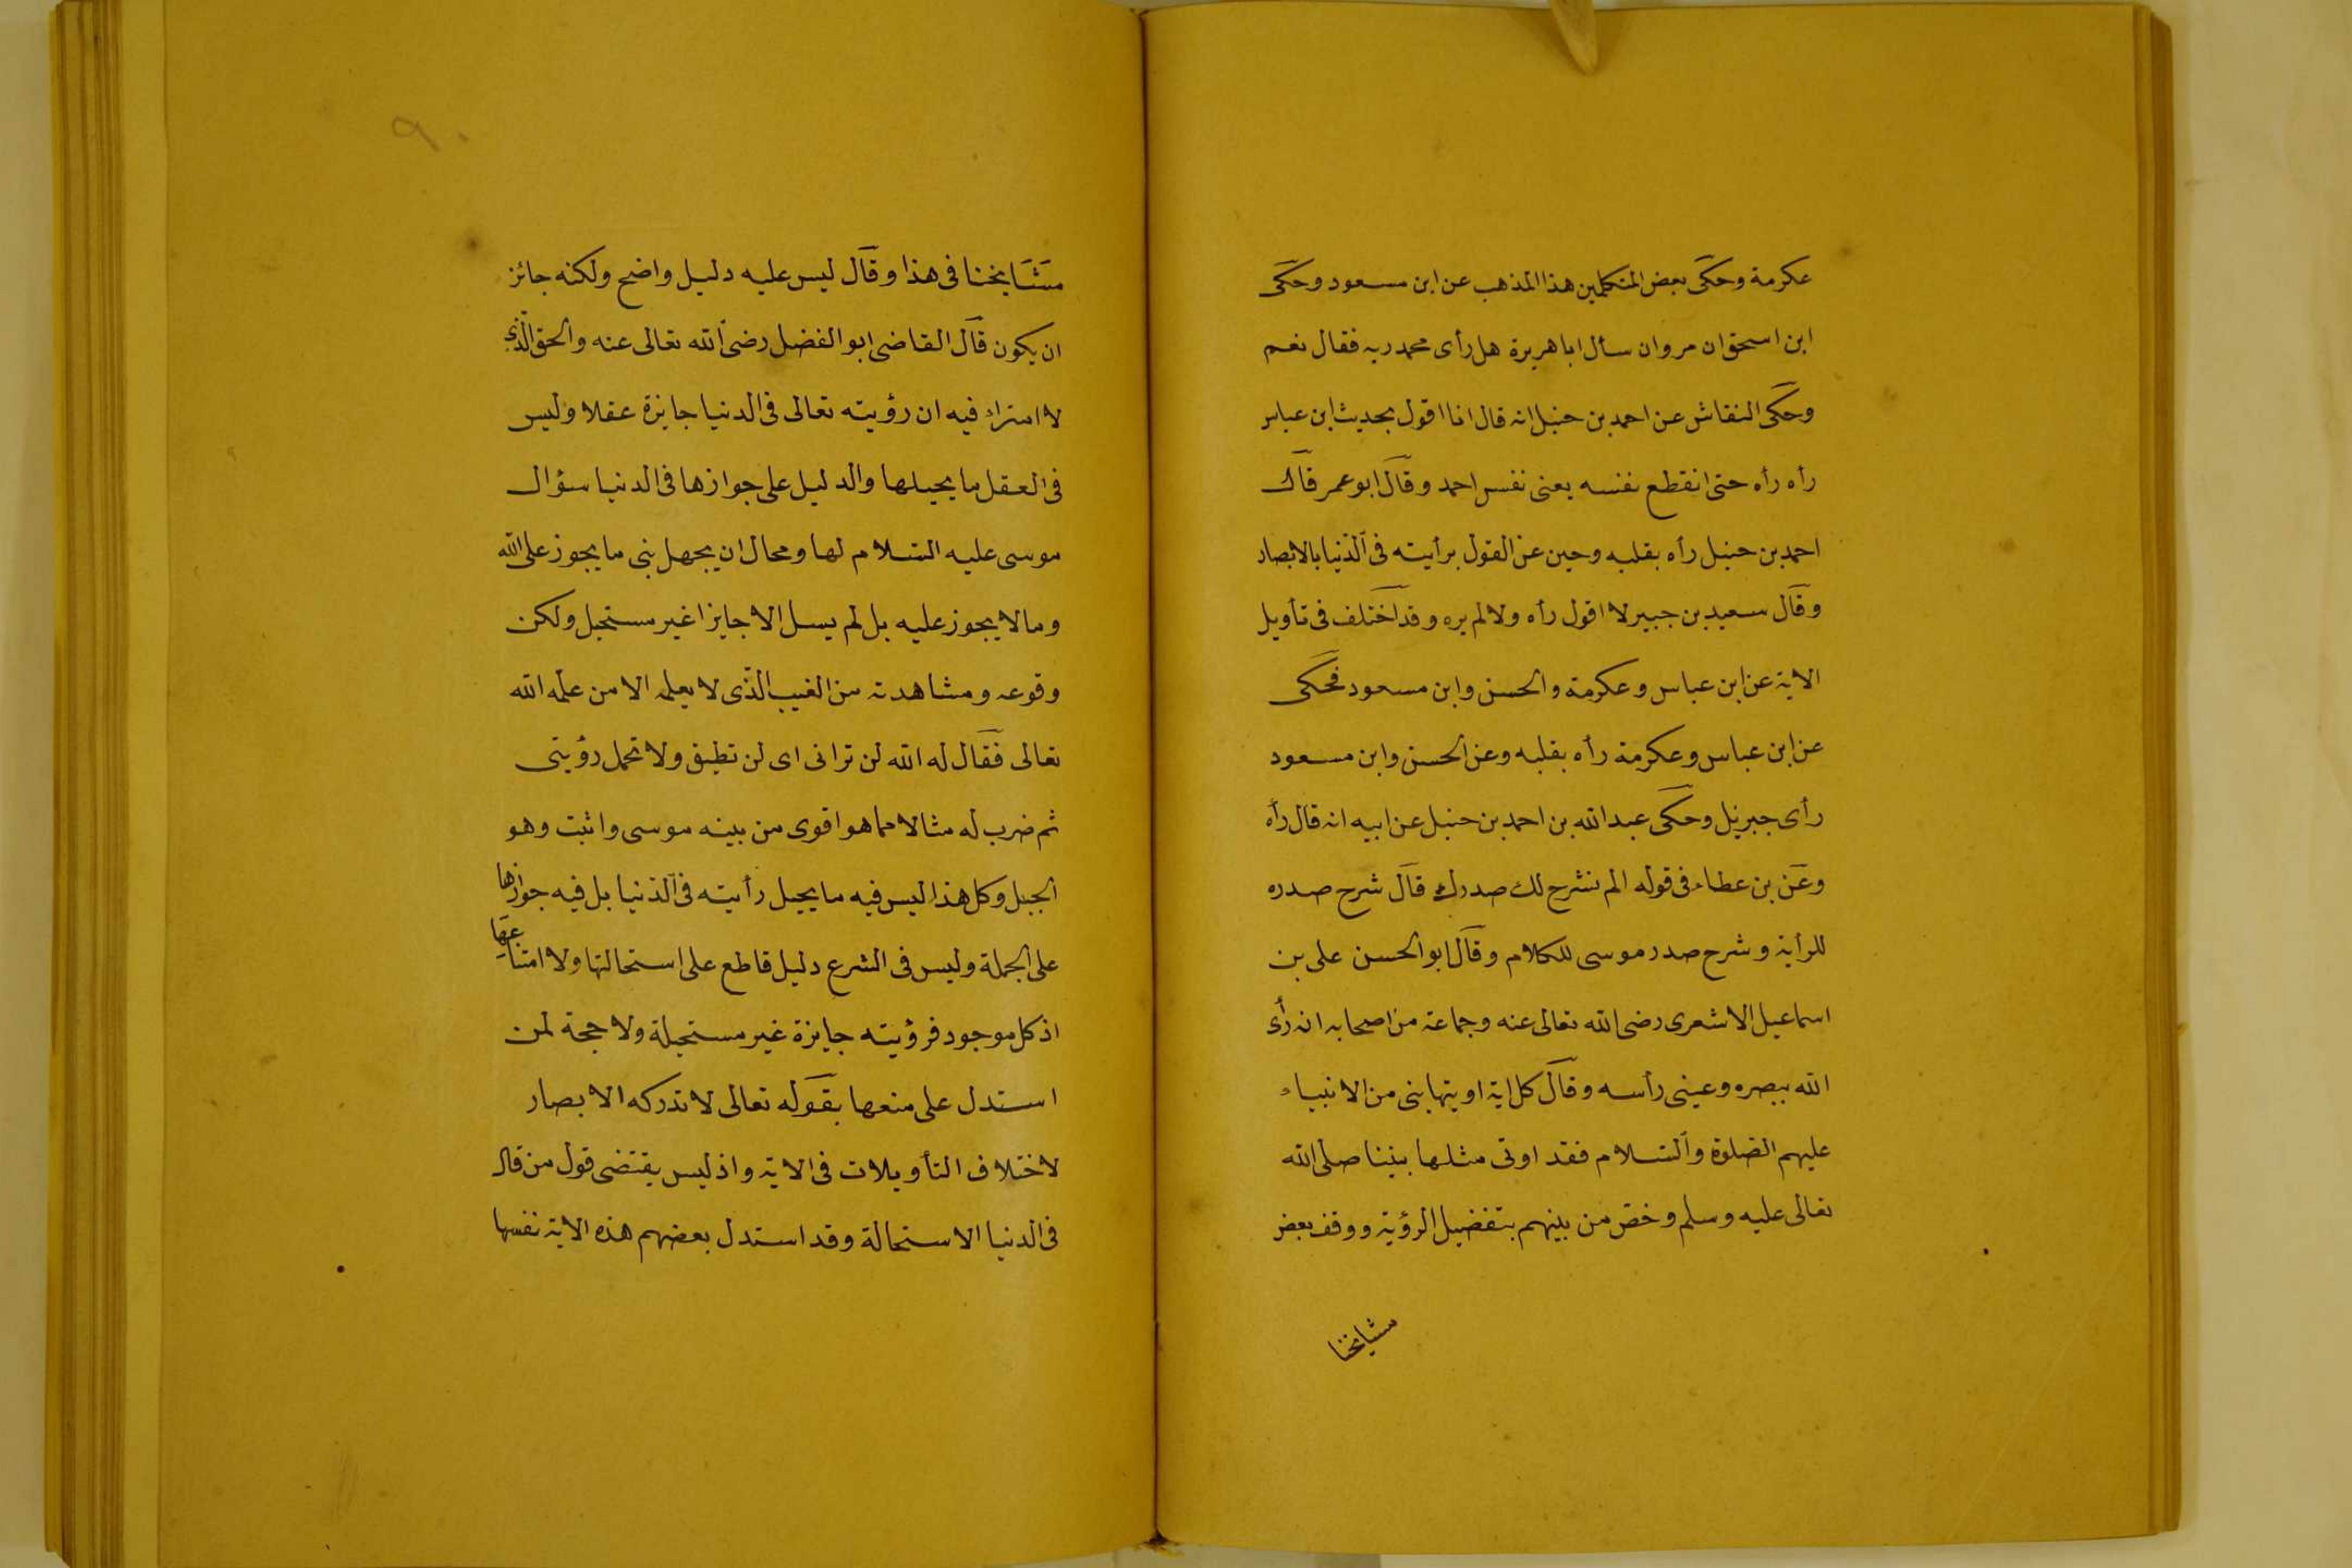 عكرمة وحكى بعض المتكلمين هذا المذهب عن ابن مسعود وحكى
ابن اسحق ان مروان سأل ابا هريرة هل رأى محمد ربه فقال نعم
وحكى النقاش عن احمد بن حنبل انه قال انا اقول بحديث ابن عباس
رأه رأه حتى انقطع نفسه يعنى نفس احمد وقال ابو عمر قال
احمد بن حنبل رأه بقلبه وحين عن القول برأيته فى الدنيا بالابصار
وقال سعيد بن جبير لا اقول رأه ولا لم يره وقد اختلف فى تأويل
الاية عن ابن عباس وعكرمة والحسن وابن مسعود فحكى
عن ابن عباس وعكرمة رأه بقلبه وعن الحسن وابن مسعود
رأى جبريل وحكى عبد الله بن احمد بن حنبل عن ابيه انه قال رأه
وعن بن عطاء فى قوله الم نشرح لك صدرك قال شرح صدره
للرأية وشرح صدر موسى للكلام وقال ابو الحسن على بن
اسماعيل الاشعرى رضى الله تعالى عنه وجماعة من اصحابه انه رأى
الله ببصره وعينى رأسه وقال كل اية اويتها بنى من الانبياء
عليهم الصلوة والسلام فقد اوتى مثلها بنينا صلى الله
تعالى عليه وسلم وخص من بينهم بتفضيل الرؤية ووقف بعض
مشايخنا
٩٠
مشايخنا فى هذا وقال ليس عليه دليل واضح ولكنه جائز
ان يكون قال القاضى ابو الفضل رضى الله تعالى عنه والحق الذى
لا امتراء فيه ان رؤيته تعالى فى الدنيا جايزة عقلا وليس
فى العقل ما يحيلها والدليل على جوازها فى الدنيا سؤال
موسى عليه السلام لها ومحال ان يجهل بنى ما يجوز على الله
وما لا يجوز عليه بل لم يسل الا جايزا غير مستحيل ولكن
وقوعه ومشاهدته من الغيب الذى لا يعلمه الا من علمه الله
تعالى فقال له الله لن ترانى اى لن تطيق ولا تحمل رؤيتى
ثم ضرب له مثالا مما هو اقوى من بينه موسى واثبت وهو
الجبل وكل هذا ليس فيه ما يحيل رأيته فى الدنيا بل فيه جوازها
على الجملة وليس فى الشرع دليل قاطع على استحالتها ولا امتناعها
اذ كل موجود فرؤيته جايزة غير مستحيلة ولا حجة لمن
استدل على منعها بقوله تعالى لا تدركه الابصار
لاختلاف التأويلات فى الاية واذ ليس يقتضى قول من قال
فى الدنيا الاستحالة وقد استدل بعضهم هذه الاية نفسها